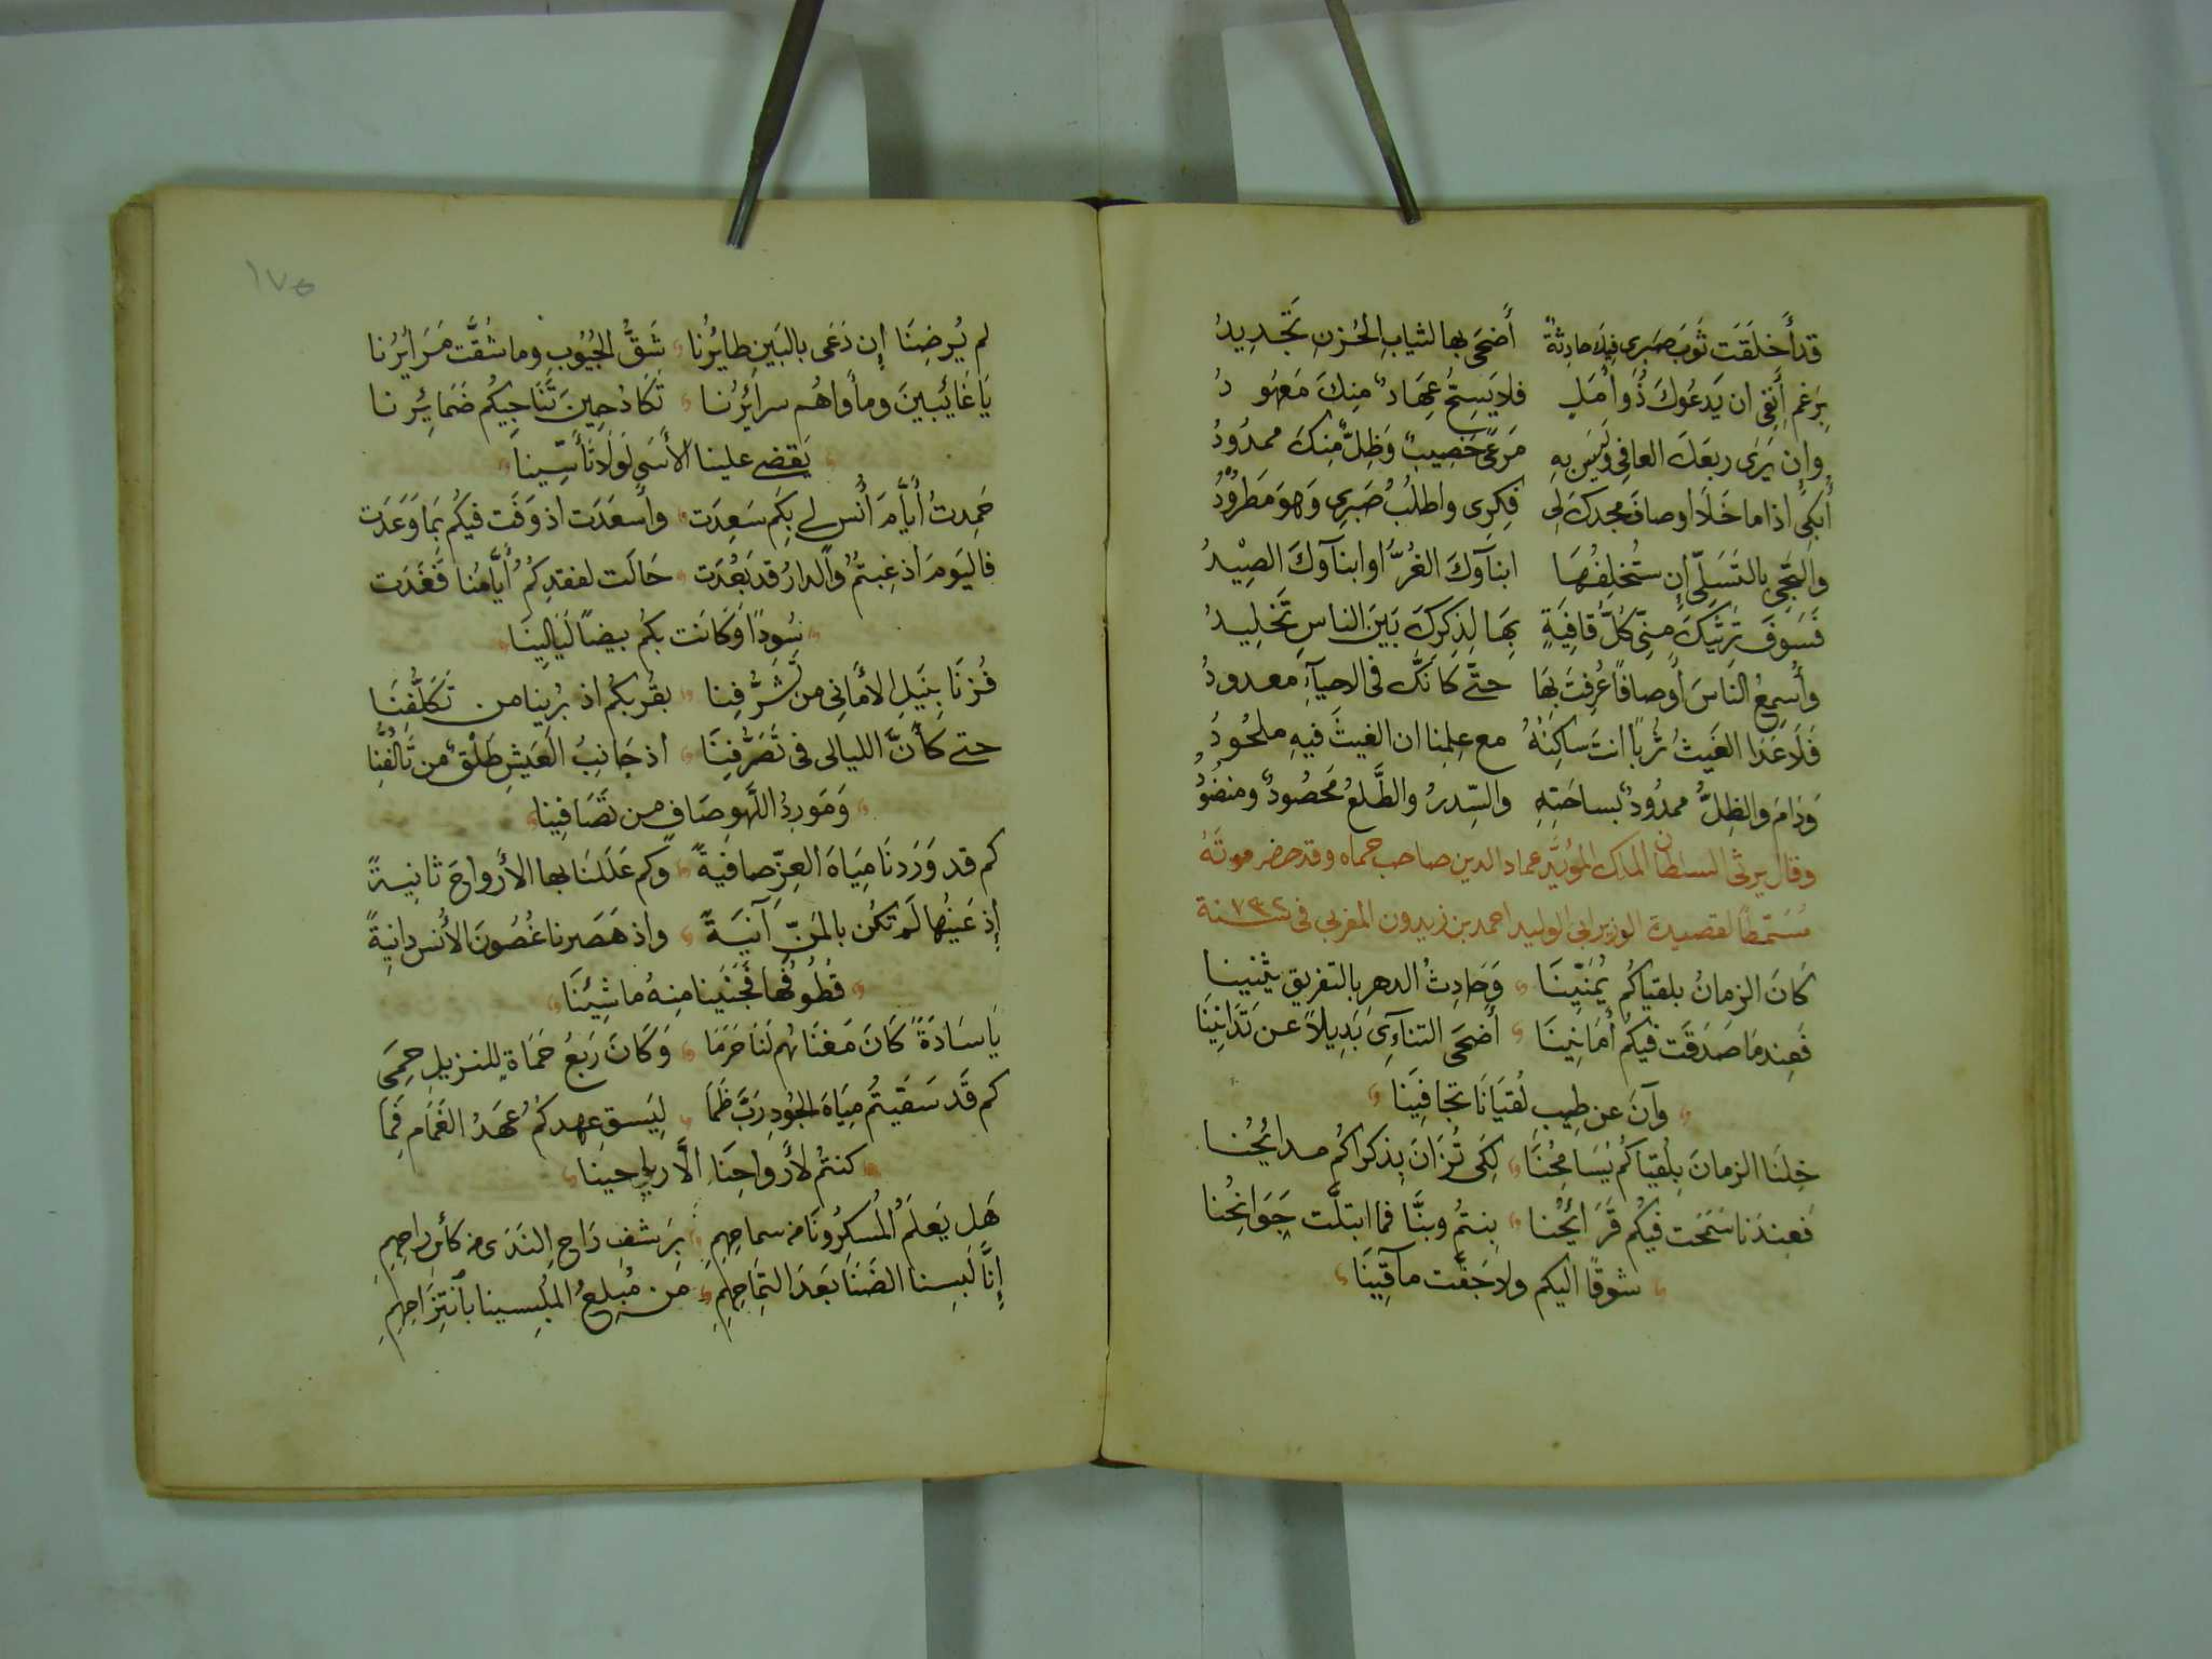 قد أَخلَقَت ثَوبَ صَبرى فِيكَ حادِثةٌ أَضحَى بها لثيابِ الحُزنِ تَجْدِيدُ
بِرَغمِ أَنفِى ان يَدعُوكَ ذُو أَمَلٍ فلا يَسِحُّ عِهَادٌ مِنكَ مَعهُودُ
وإن يَرَى ربعَكَ العافِى وَلَيسَ بهِ مَرعًى خَصِيبٌ وَظِلٌّ مِنكَ ممدُودُ
أَبكِى اذا ما خَلَا أوصافُ مجدكَ لِى فِكرِى واطلُبُ صَبرِى وَهوَ مَطرُودُ
والتَجِى بالتَسَلِّى إن ستُخلِفُهَا ابنآوكَ الغُرُّ أو ابنآوكَ الصِيْدُ
فَسَوفَ تَرثيكَ مِنِّى كُلُّ قافِيَةٍ بِهَا لِذِكرِكَ بَينَ الناسِ تَخلِيدُ
وأُسمِعُ الناسَ أوصافًا عُرِفتَ بِهَا حتّى كَانَّكَ فى الاحيآءِ معدودُ
فَلَا عَدَا الغَيثُ تُربًا انتَ ساكِنُهُ مع عِلمِنا ان الغيثَ فيهِ ملحُودُ
وَدَامَ والظِلُّ ممدُودٌ بساحَتِهِ والسِّدرُ والطَّلعُ مَخصُودٌ ومنضُودُ
وقال يرثى السلطان الملك المؤيَّد عماد الدين صاحب حماه وقد حضر موتَهُ
مُسَمّطًا لقصيدة الوزير ابى الوليد احمد بن زيدون المغربى فى سنة ٧٣٢
كَانَ الزمانُ بلقياكُم يُمَنِّينَا وَحَادِثُ الدهرِ بالتفريقِ يثنينا
فَعِندمَا صَدَقَت فيكُم أَمَانِينَا أَضحَى التنآءِى بَدِيلاً عَن تَدَانِينَا
وآنَ عن طِيبِ لُقيَانَا تجافِينَا
خِلنَا الزمانَ بِلُقياكُم يُسَامِحُنَا لِكَى تُزَانَ بِذكراكُم مدايُحُنا
فَعِندَنا سَمَحت فيكُم قَرَايُحُنا بِنتُم وبنَّا فما ابتلَّت جَوَانِحُنا
شوقًا اليكم ولا جَفَّت مآقِينَا
١٧٥
لم يُرضِنَا إن دَعَى بالبَينِ طايُرُنا شَقُّ الجُيُوبِ وما شُقَّت مَرَايُرُنا
يَا غَايُبينَ ومأواهُم سرايُرُنا تَكَادُ حِينَ تُنَاجِيكُم ضَمَايُرِنا
يَقضى علينا الأَسَى لَولَا تَأسِّينا
حَمِدتُ أَيَّامَ أُنسٍ لى بِكُم سَعِدَت وأسعَدَت اذ وَفَت فيكُم بمَا وَعَدَت
فاليَومَ اذ غِبتمُ والدارُ قد بَعُدَت حَالَت لفقدِكُمُ أَيَّامُنا فَغَدَت
سُودًا وَكَانَت بكُم بيضًا لَيَالِينَا
فُزنَا بِنَيلِ الأَمَانِى من تَشَرُّفِنا بقُربِكُم اذ بُرِينا من تَكَلُّفِنَا
حتى كَأنَّ الليالى فى تَصَرُّفِنَا اذ جَانِبُ العَيشِ طَلْقٌ من تَالُّفِنَا
وَمَورِدُ اللَّهوِ صَافٍ من تَصَافِينا
كم قد وَرَدنَا مِيَاهَ العِزّ صافيةً وكم عَلَلنَا بها الأَرواحَ ثانيةً
إذ عَينُهَا لَم تكُن بالمَنّ آنيَةً واذ هَصَرنا غُصُونَ الأُنس دانِيةً
قُطُوفُهَا فَجَنَينا مِنهُ ما شِينَا
يَا سَادَةً كَانَ مَغنَاهُم لَنَا حَرَمَا وَكَانَ رَبعُ حَمَاةٍ للنزيلِ حِمَى
كم قَد سَقَيتُم مِيَاهَ الجُودِ رَبَّ ظَمَا لِيَسقِ عهدكُمُ عَهدُ الغَمَامِ فَمَا
كنتمُ لأرواحِنَا الَّا رياحينا
هَل يَعلَمُ المُسكِرُونَا من سماحِهِمِ بِرَشفِ رَاحِ النَدَى من كأسِ راحِهِمِ
إنَّا لَبِسنا الضَنَا بَعدَ التِمَاحِهِمِ مَن مُبلِغُ المُلبِسينا بأنتِزَاحِهِمِ